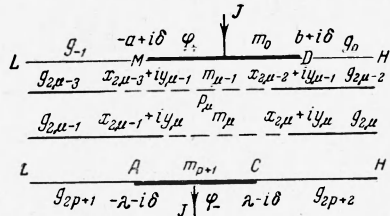 J
-a+iδ φ₊ m₀ b+iδ
L g₋₁ M D g₀ H
g₂μ₋₃ x₂μ₋₃+iyμ₋₁ mμ₋₁ x₂μ₋₂+iyμ₋₁ g₂μ₋₂
pμ
g₂μ₋₁ x₂μ₋₁+iyμ mμ x₂μ+iyμ g₂μ
L A mₚ₊₁ C H
g₂ₚ₊₁ -λ-iδ J φ₋ λ-iδ g₂ₚ₊₂